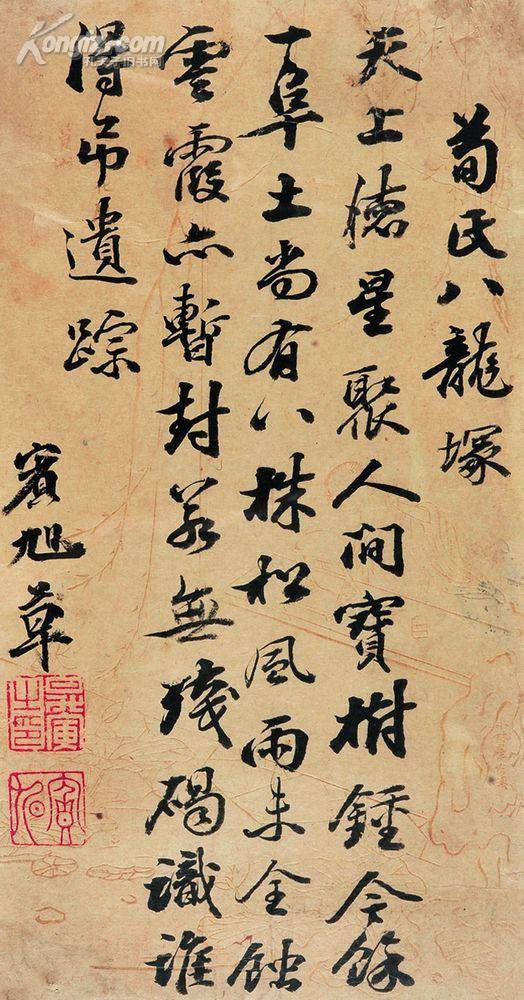 Kongfz.com
孔夫子旧书网
荀氏八龍塚
天上德星聚人間寶樹鍾今餘
一阜土尚有八株松風雨未全蝕
雲霞亦暫封若無殘碣識誰
得吊遺踪
寅旭草